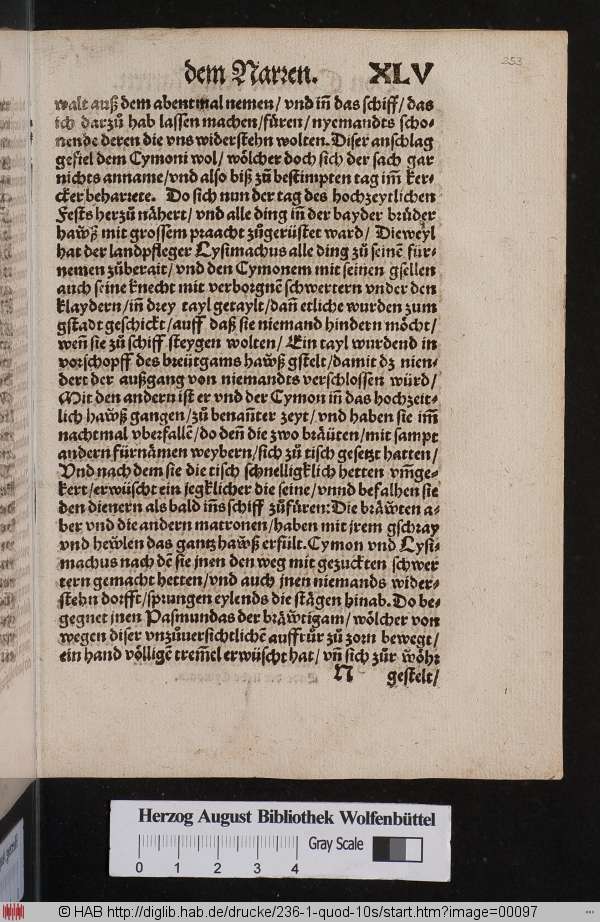 253
dem Narren. XLV
walt auß dem abentmal nemen/ vnd in̄ das schiff/ das
ich darzů hab lassen machen/ fůren/ nyemandts scho-
nende deren die vns widerstehn wolten. Diser anschlag
gefiel dem Cymoni wol/ wölcher doch sich der sach gar
nichts anname/ vnd also biß zů bestimpten tag im̄ ker-
cker beharrete. Do sich nun der tag des hochzeytlichen
Fests herzů nähert/ vnd alle ding in̄ der bayder brůder
haẃß mit grossem praacht zůgerüstet ward/ Dieweyl
hat der landpfleger Lysimachus alle ding zů seinē für-
nemen zůberait/ vnd den Cymonem mit seinen gsellen
auch seine knecht mit verborgnē schwertern vnder den
klaydern/ in̄ drey tayl getaylt/ dan̄ etliche wurden zum
gstadt geschickt/ auff daß sie niemand hindern möcht/
wen̄ sie zů schiff steygen wolten/ Ein tayl wurdend in
vorschopff des breütgams haẃß gstelt/ damit dz nien-
dert der außgang von niemandts verschlossen würd/
Mit den andern ist er vnd der Cymon in̄ das hochzeit-
lich haẃß gangen/ zů benan̄ter zeyt/ vnd haben sie im̄
nachtmal vberfallē/ do den̄ die zwo bräüten/ mit sampt
andern fürnämen weybern/ sich zů tisch gesetzt hatten/
Vnd nach dem sie die tisch schnelligklich hetten vm̄ge-
kert/ erwüscht ein jegklicher die seine/ vnnd befalhen sie
den dienern als bald in̄s schiff zůfüren: Die bräẃten a-
ber vnd die andern matronen/ haben mit jrem gschray
vnd heẃlen das gantz haẃß erfült. Cymon vnd Lysi-
machus nach dē sie jnen den weg mit gezuckten schwer
tern gemacht hetten/ vnd auch jnen niemands wider-
stehn dorfft/ sprungen eylends die stägen hinab. Do be-
gegnet jnen Pasmundas der bräẃtigam/ wölcher von
wegen diser vnzůuersichtlichē auffrůr zů zorn bewegt/
ein hand völligē trem̄el erwüscht hat/ vn̄ sich zůr wöhr
N gestelt/
Herzog August Bibliothek Wolfenbüttel
Gray Scale
0 1 2 3 4
© HAB http://diglib.hab.de/drucke/236-1-quod-10s/start.htm?image=00097